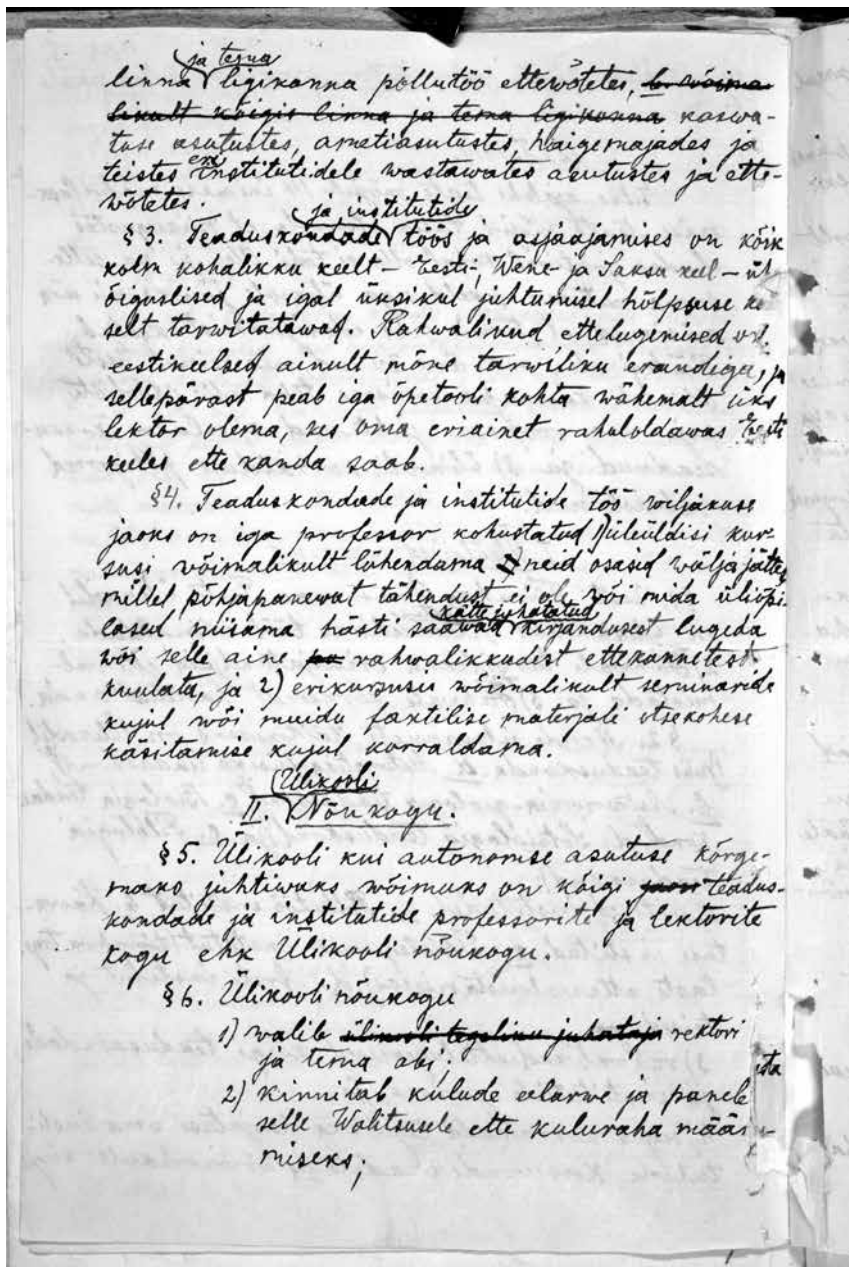 ja tema
linna ligikonna põllutöö ettewõtetes, b. wõima-
likult kõigis linna ja tema ligikonna kaswa-
tuse asutustes, ametiasutustes, haigemajades ja
teistes instituutidele wastawates asutustes ja ette-
wõtetes.
ja institutide
§ 3. Teaduskondade töös ja asjaajamises on kõik
kolm kohalikku keelt – Eesti-, Wene- ja Saksa keel – üh
õiguslised ja igal üksikul juhtumisel hõlpsuse
selt tarwitatawad. Rahwalikud ettelugemised
eestikeelsed ainult mõne tarwiliku erandiga, ja
sellepärast peab iga õpetooli kohta wähemalt üks
lektor olema, kes oma eriainet rahuloldawas Eesti
keeles ette kanda saab.
§4. Teaduskondade ja institutide töö wiljakuse
jaoks on iga professor kohustatud 1) üleüldisi kur-
susi wõimalikult lühendama neid osasid wälja jättes
millel põhjapanewat tähendust ei ole wõi mida üliõpi-
kätte juhatatud
lased niisama hästi saawad kirjandusest lugeda
wõi selle aine rahwalikkudest ettekannetest
kuulata, ja 2) erikursusis wõimalikult seminaride
kujul wõi muidu faktilise materjali otsekohese
käsitamise kujul korraldama.
Ülikooli
II. Nõukogu.
§ 5. Ülikooli kui autonomse asutuse kõrge-
maks juhtiwaks wõimuks on kõigi teadus-
kondade ja institutide professorite ja lektorite
kogu ehk Ülikooli nõukogu.
§ 6. Ülikooli nõukogu
1) walib ülikooli tegeliku juhataja rektori
ja tema abi;
2) kinnitab kulude eelarwe ja paneb
selle Walitsusele ette kuluraha määra-
miseks;